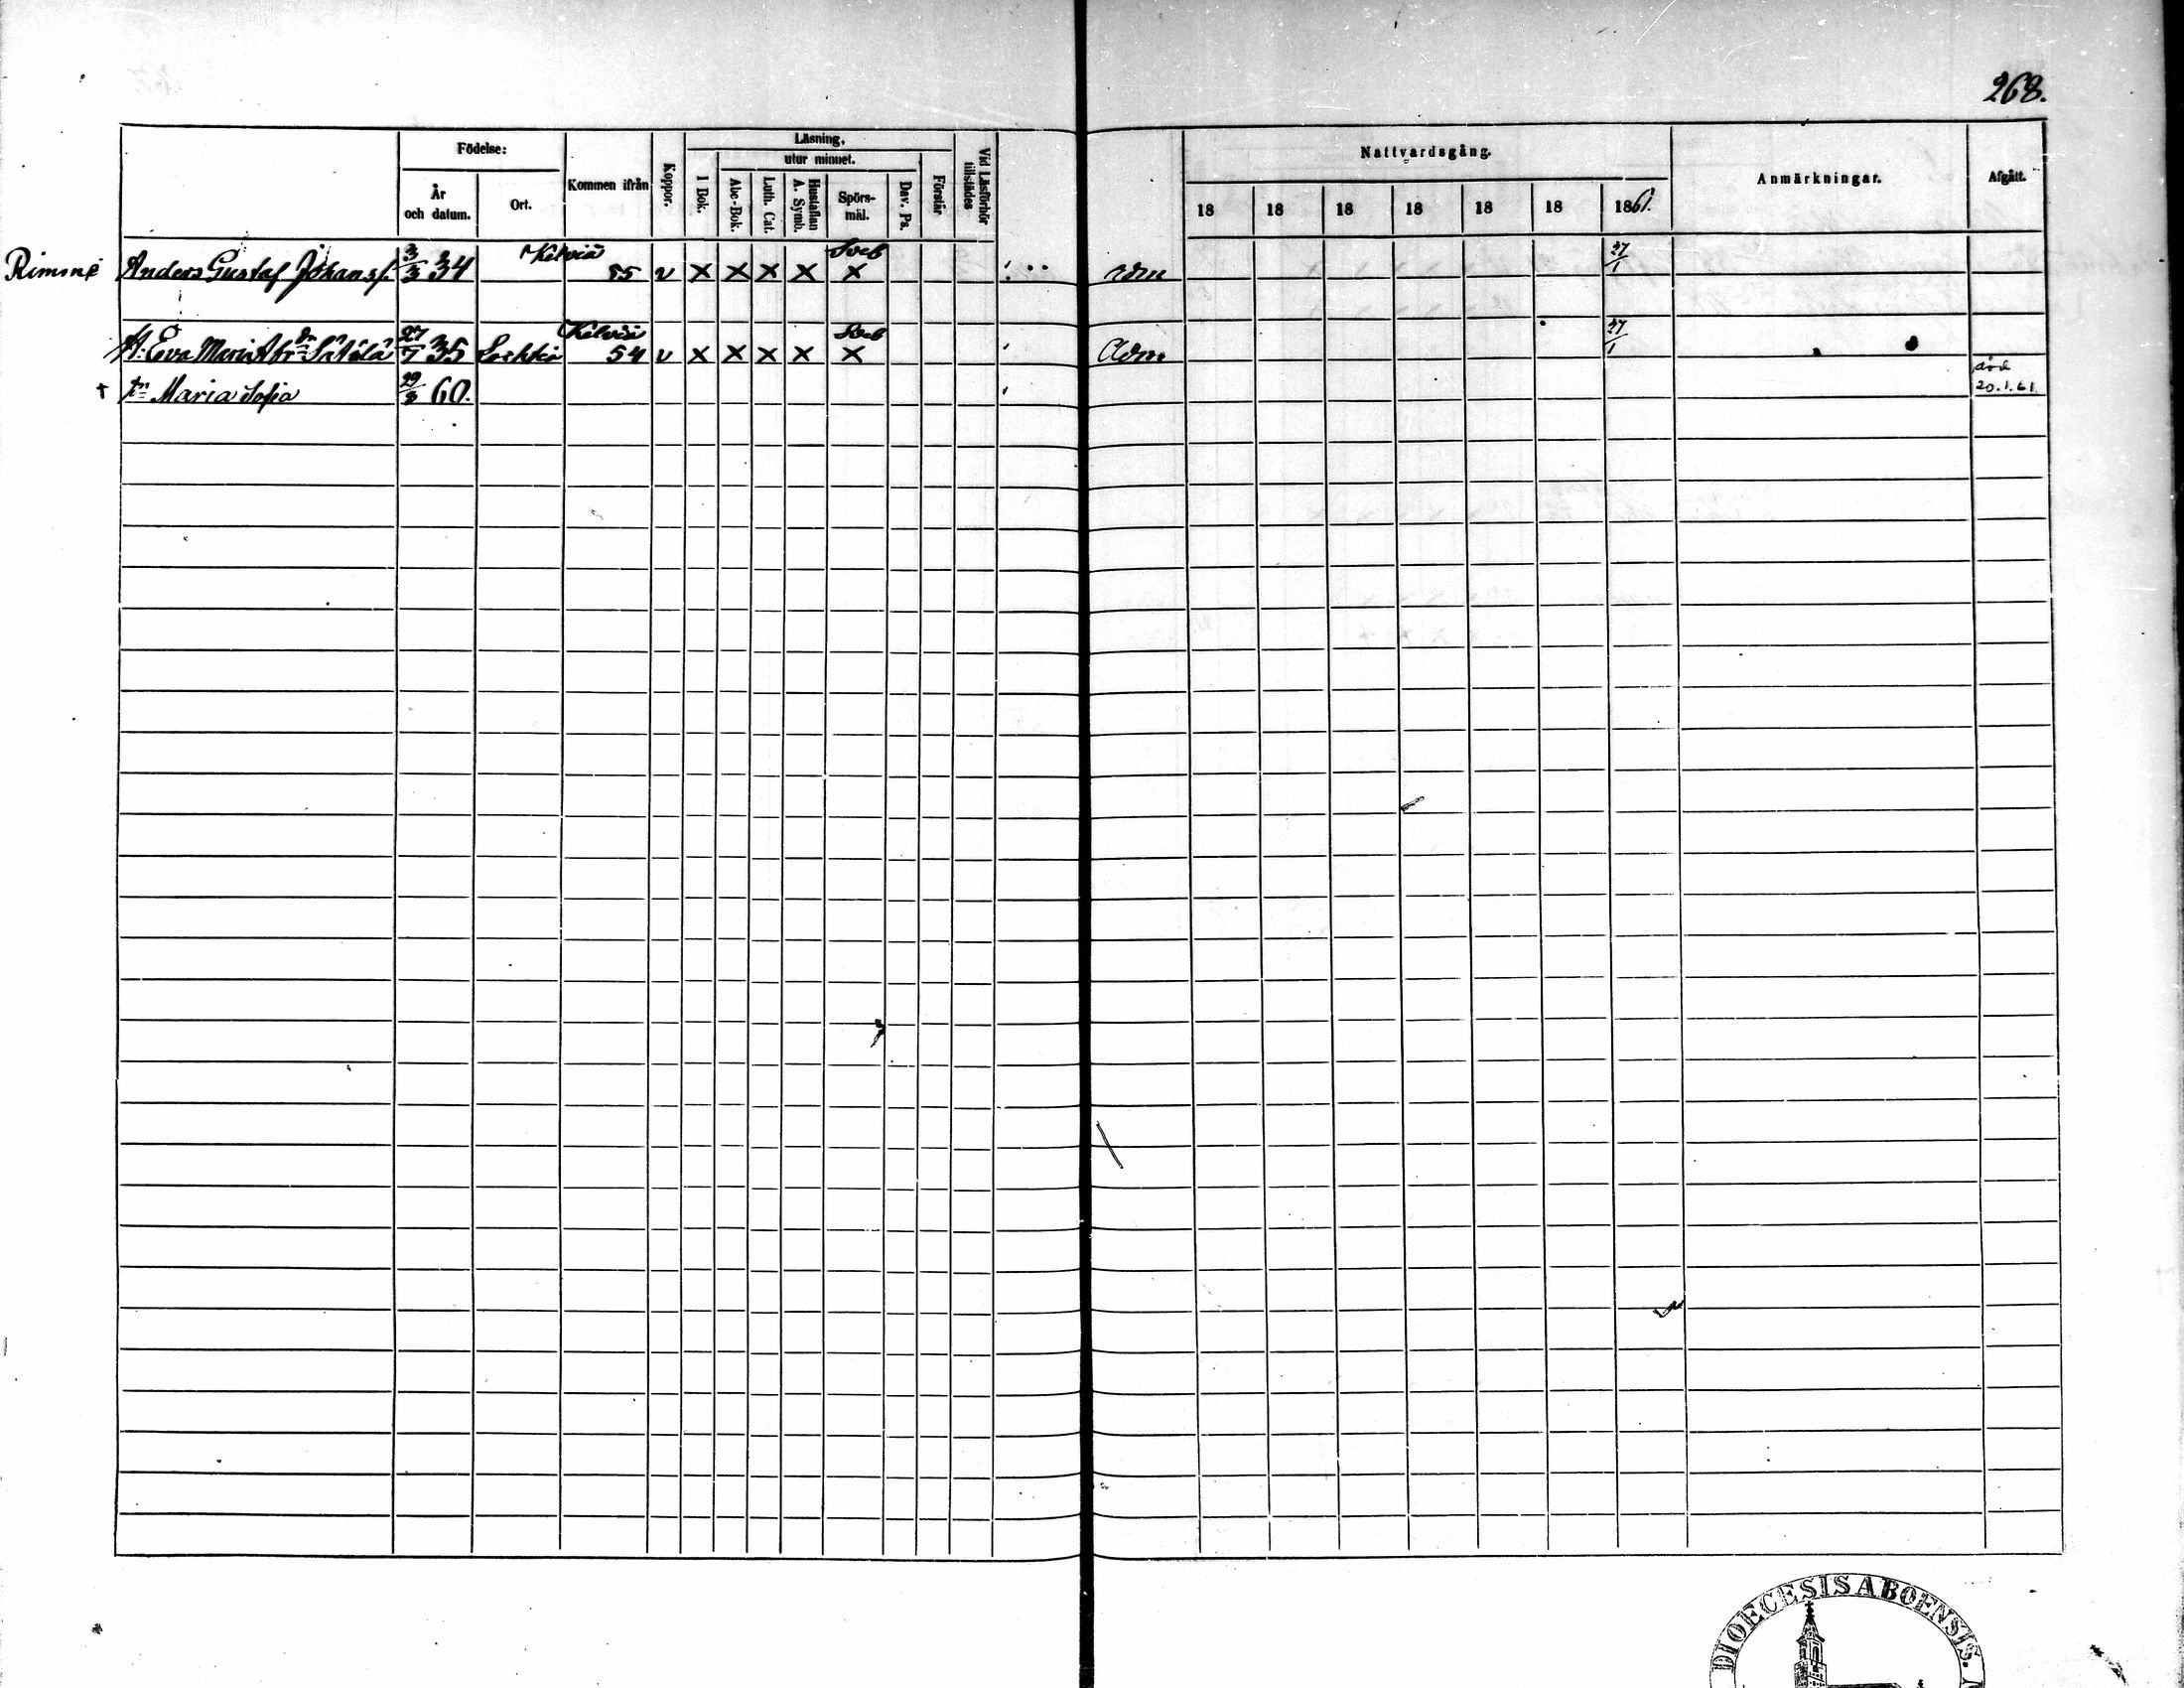 268.
Födelse:
År och datum.
Ort.
Kommen ifrån
Koppor.
Läsning,
utur minnet.
I Bok.
Abc-Bok.
Luth. Cat.
Hustaflan A. Symb.
Spörs-mål.
Dav. Ps.
Förstår
Vid Läsförhör tillstädes
Nattvardsgång.
18 18 18 18 18 18 1861.
Anmärkningar.
Afgått.
Rimmi Anders Gustaf Johanss. 3/3 34 Kelviå 55 v x x x x Sveb x adm 27/1
H. Eva Maria Abr dr Såtålå 27/7 35 Lochteå Kelviå 54 v x x x x Sveb x Adm 27/1
† dr Maria Sofia 29/8 60. död 20.1.61
DIOECESIS ABOENSIS.